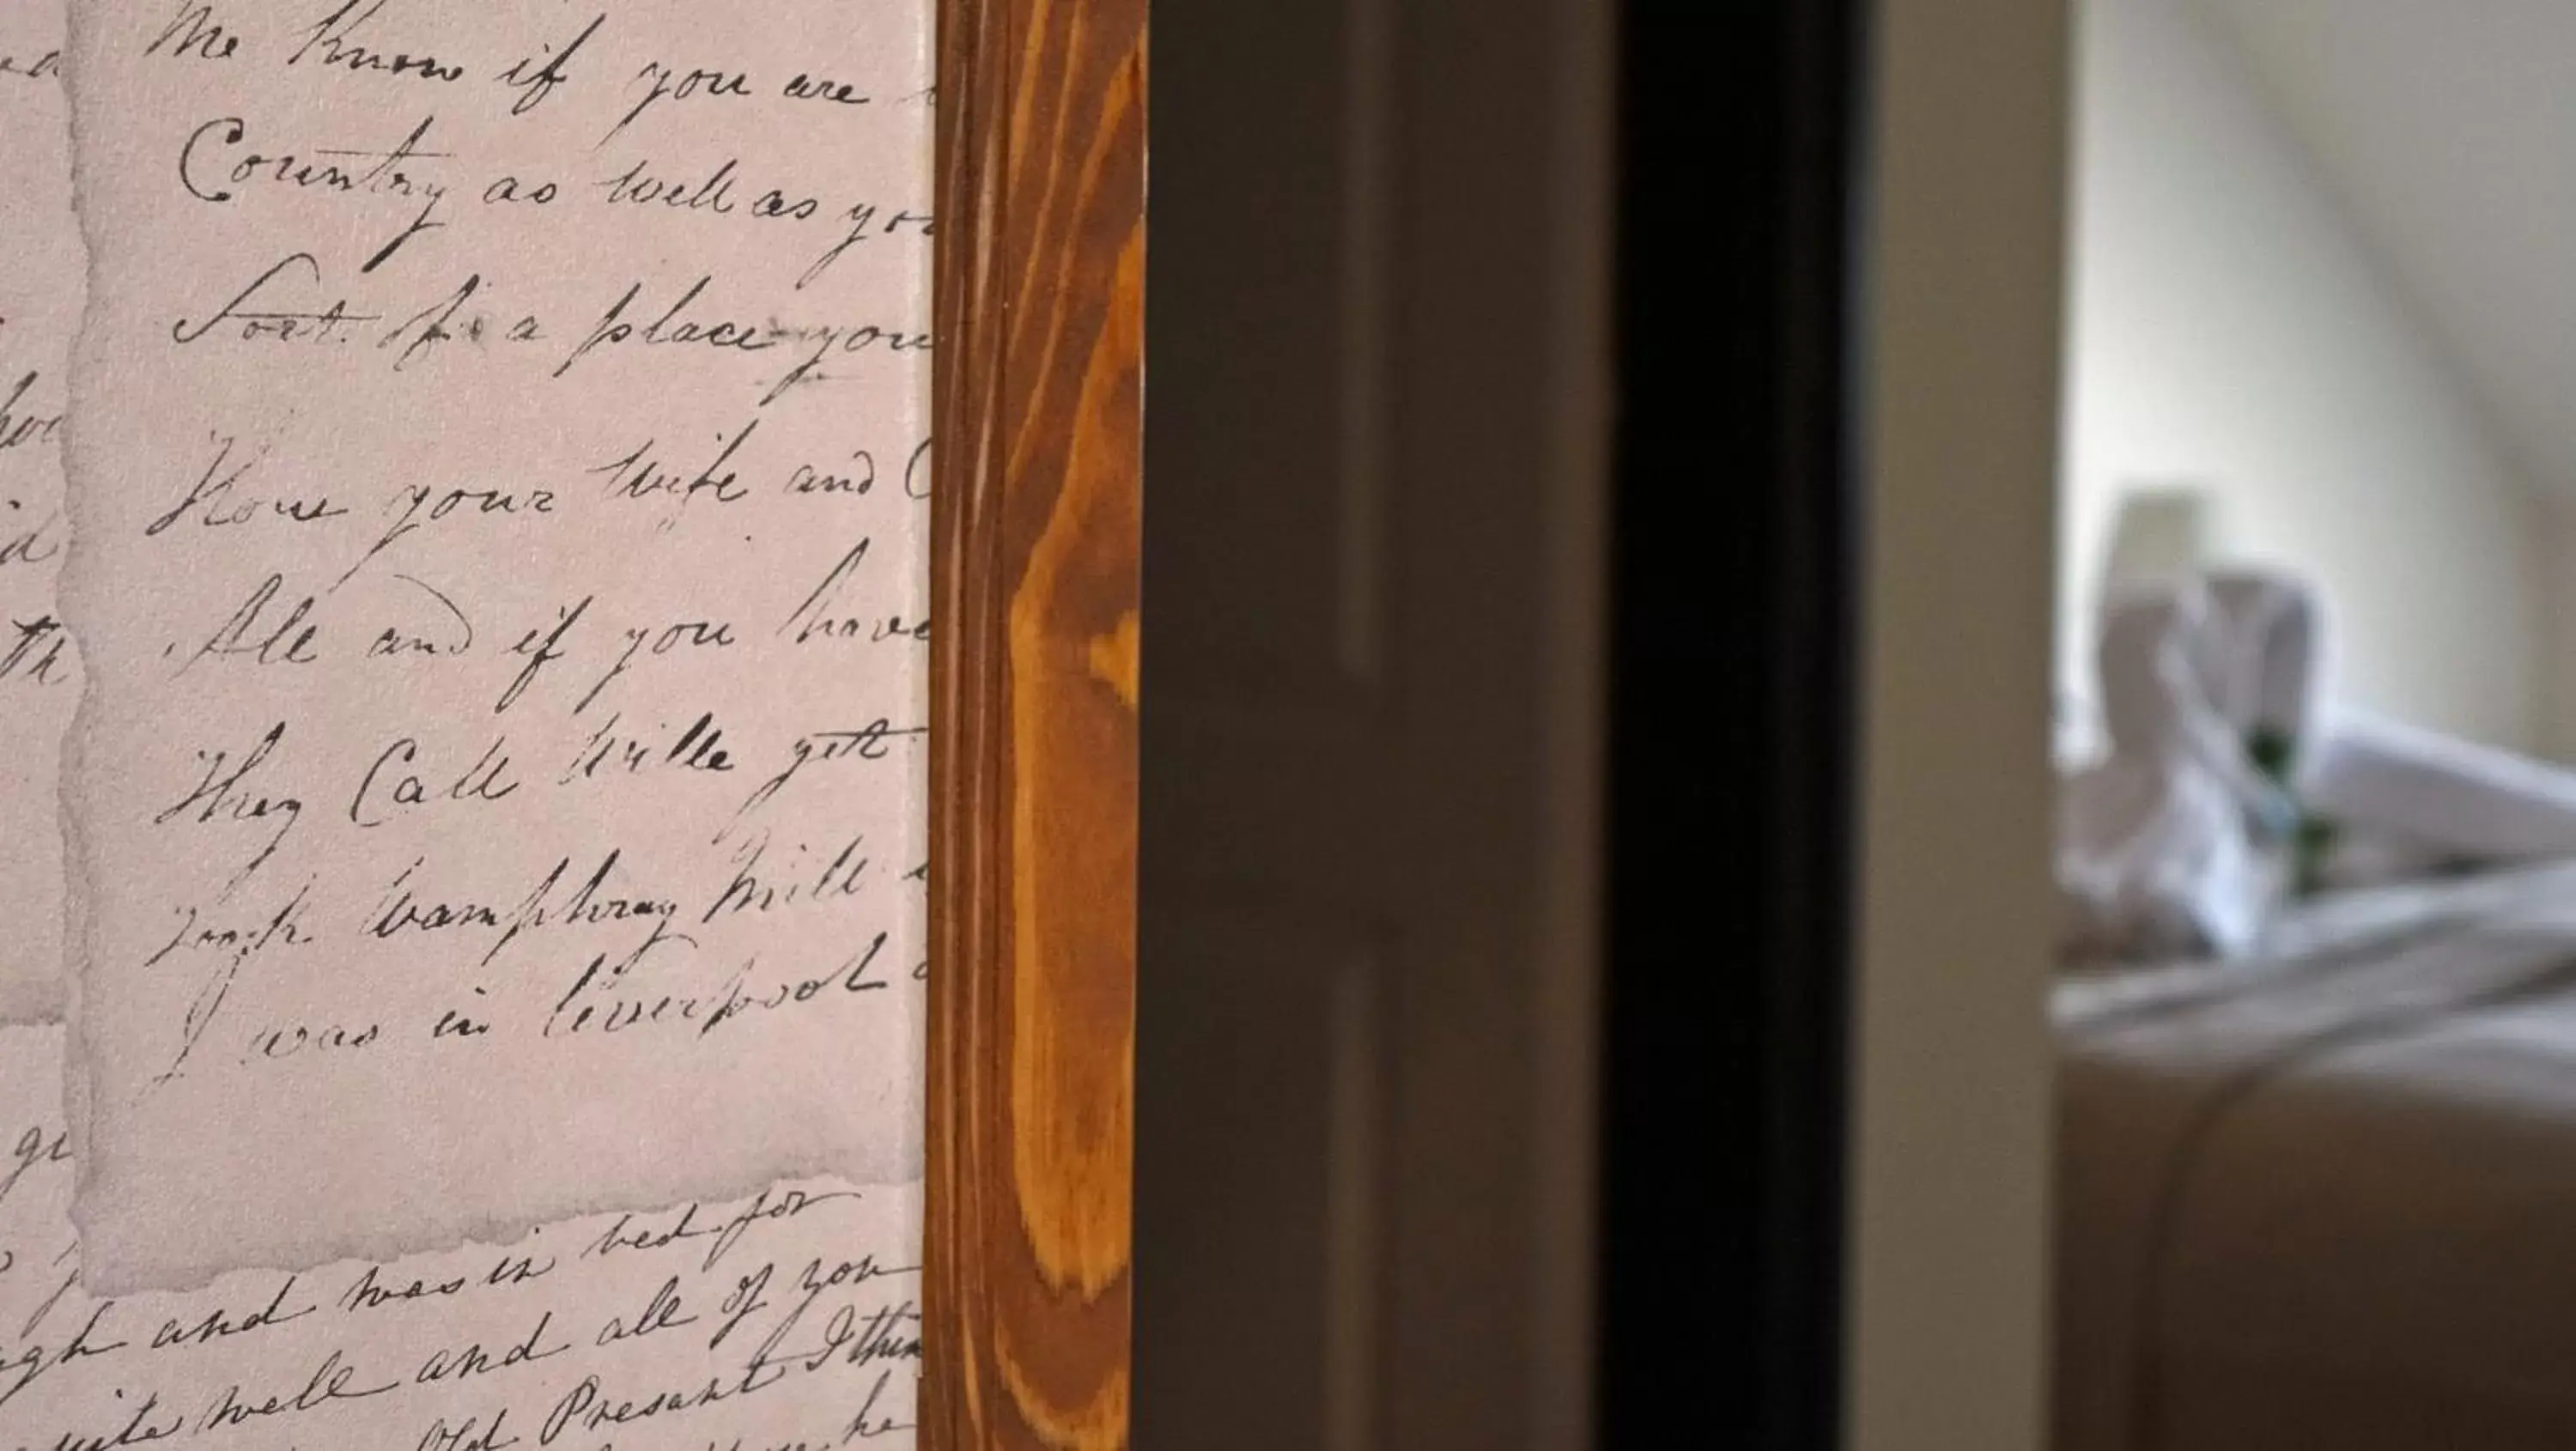 Me Know if you are
Country as well as you
Sort of a place you
How your wife and
Ale and if you have
They Call Wille yet
Took Wamphray Mill
I was in liverpool
and was in bed for
quite well and all of you
Old Presant I thin
he